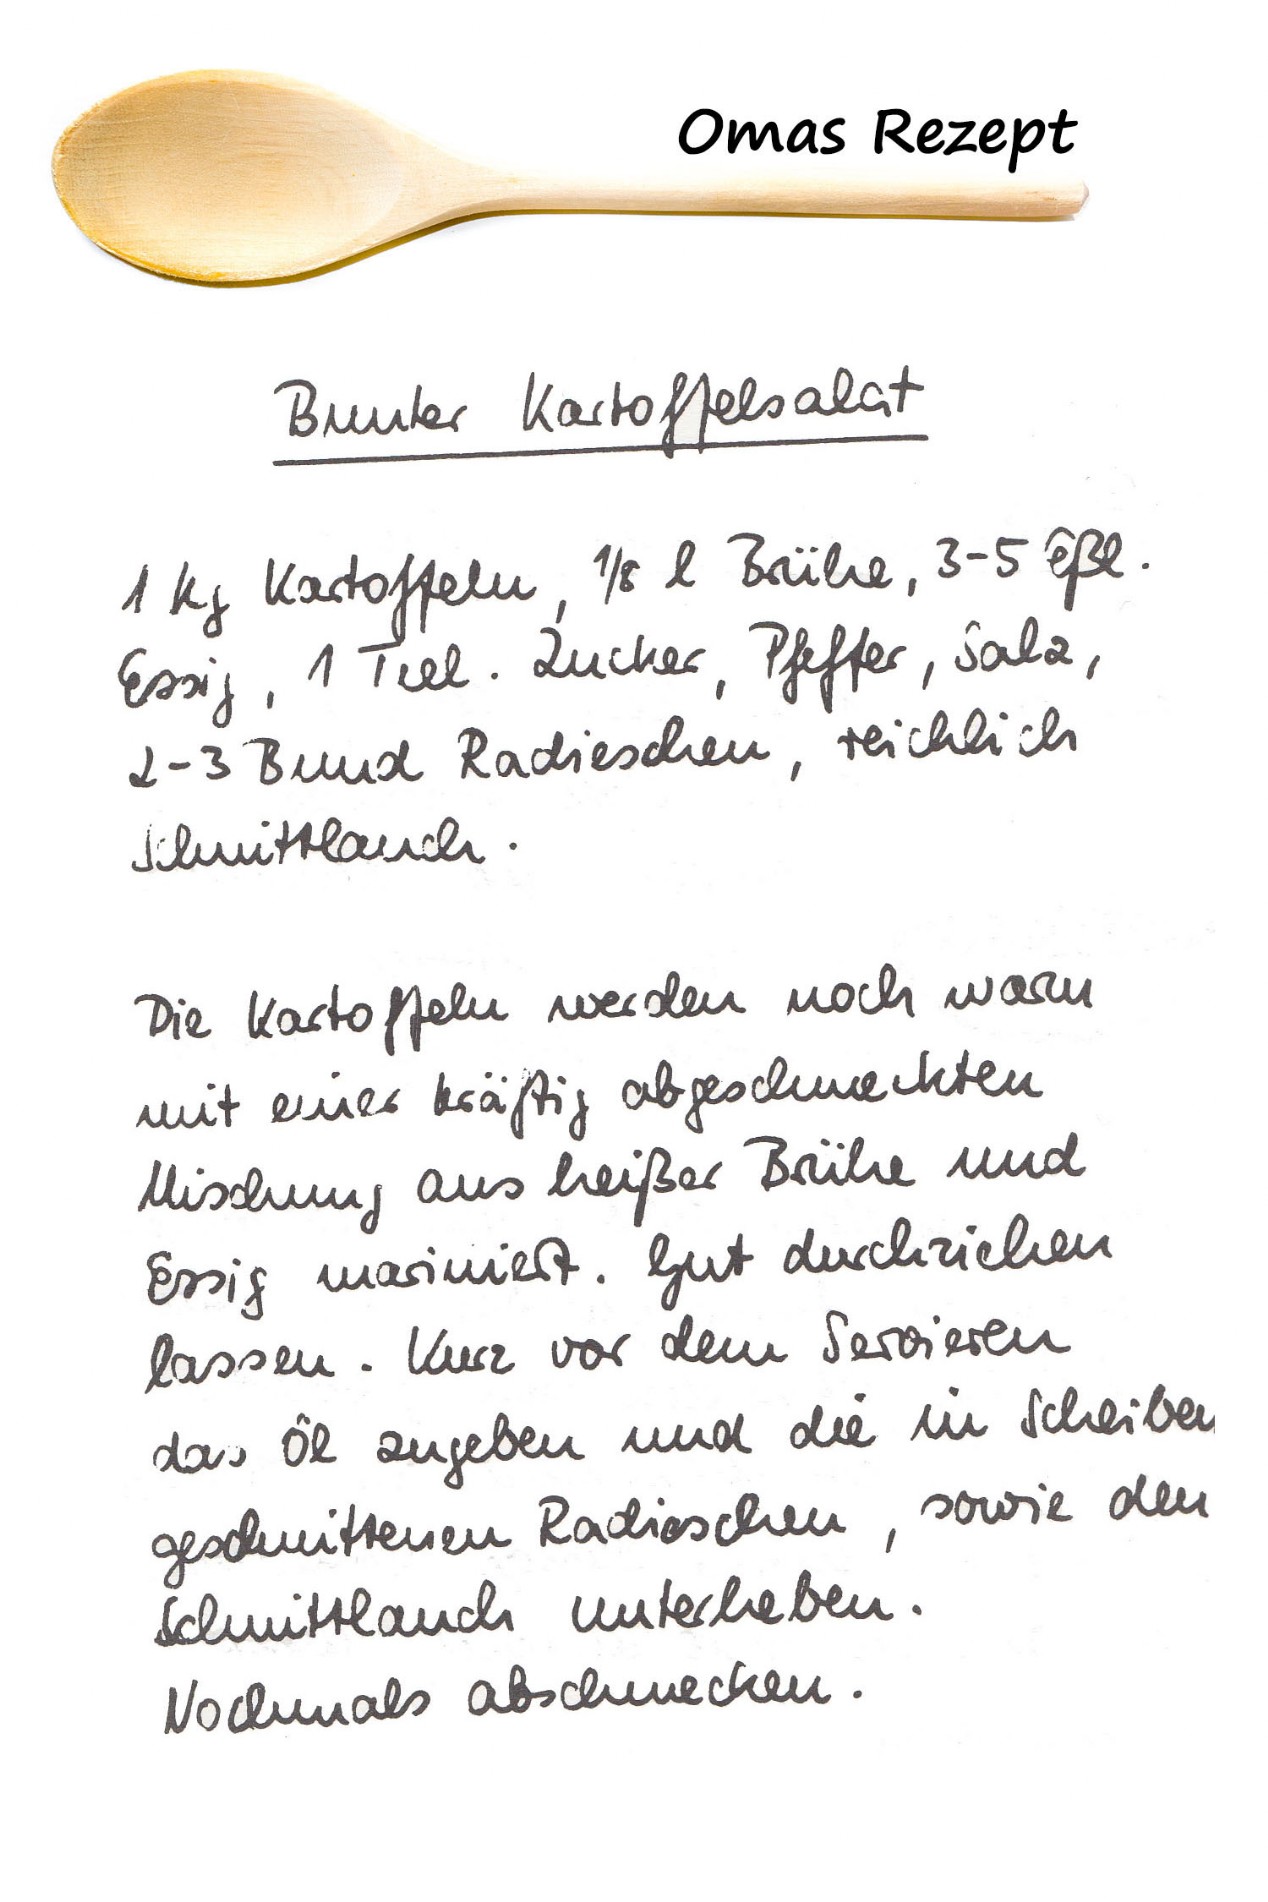 Omas Rezept
Bunter Kartoffelsalat
1 kg Kartoffeln, 1/8 l Brühe, 3-5 Eßl.
Essig, 1 Teel. Zucker, Pfeffer, Salz,
2-3 Bund Radieschen, reichlich
Schnittlauch.
Die Kartoffeln werden noch warm
mit einer kräftig abgeschmeckten
Mischung aus heißer Brühe und
Essig mariniert. Gut durchziehen
lassen. Kurz vor dem Servieren
das Öl zugeben und die in Scheiben
geschnittenen Radieschen, sowie den
Schnittlauch unterheben.
Nochmals abschmecken.